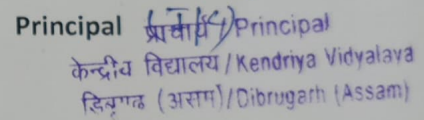 Principal प्राचार्य/Principal
केन्द्रीय विद्यालय/Kendriya Vidyalaya
डिब्रूगढ़ (असम)/Dibrugarh (Assam)